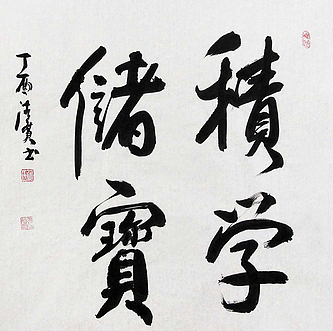 積学
儲寶
丁酉